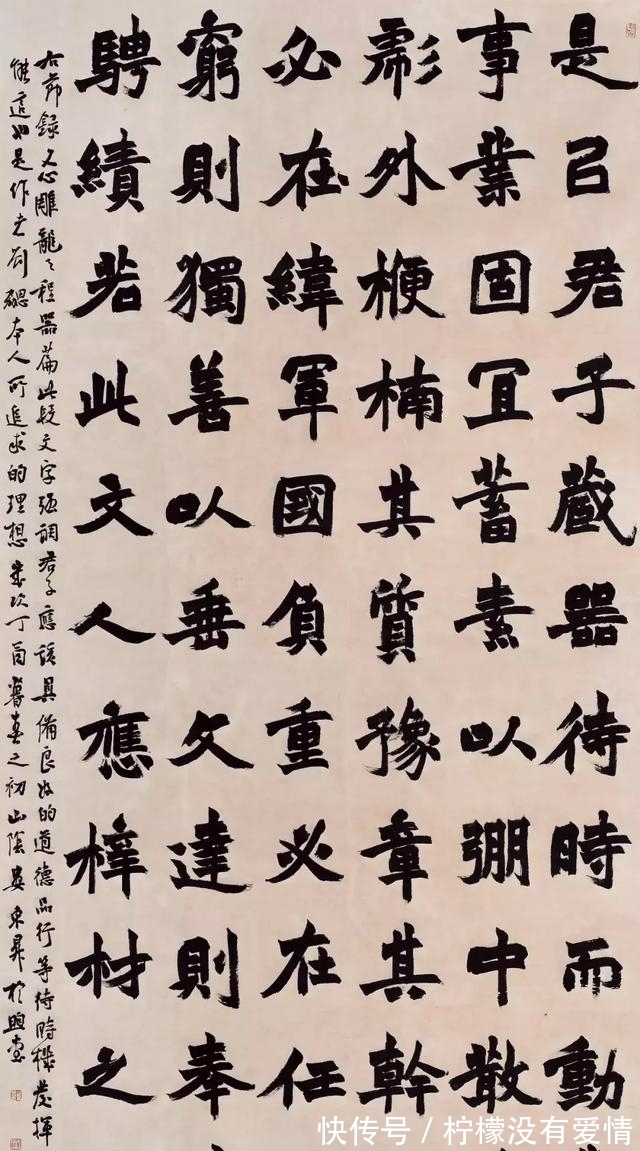 是㠯君子藏器待時而動
事業固宜蓄素以弸中散
彪外楩楠其質豫章其幹
必在緯軍國負重必在任
窮則獨善以垂文達則奉
騁績若此文人應梓材之
右節録文心雕龍之程器篇此段文字强調君子應該具備良好的道德品行等待時機發揮
能這也是作者劉勰本人所追求的理想歲次丁酉暮春之初山陰吳東昇於
快传号 / 柠檬没有爱情